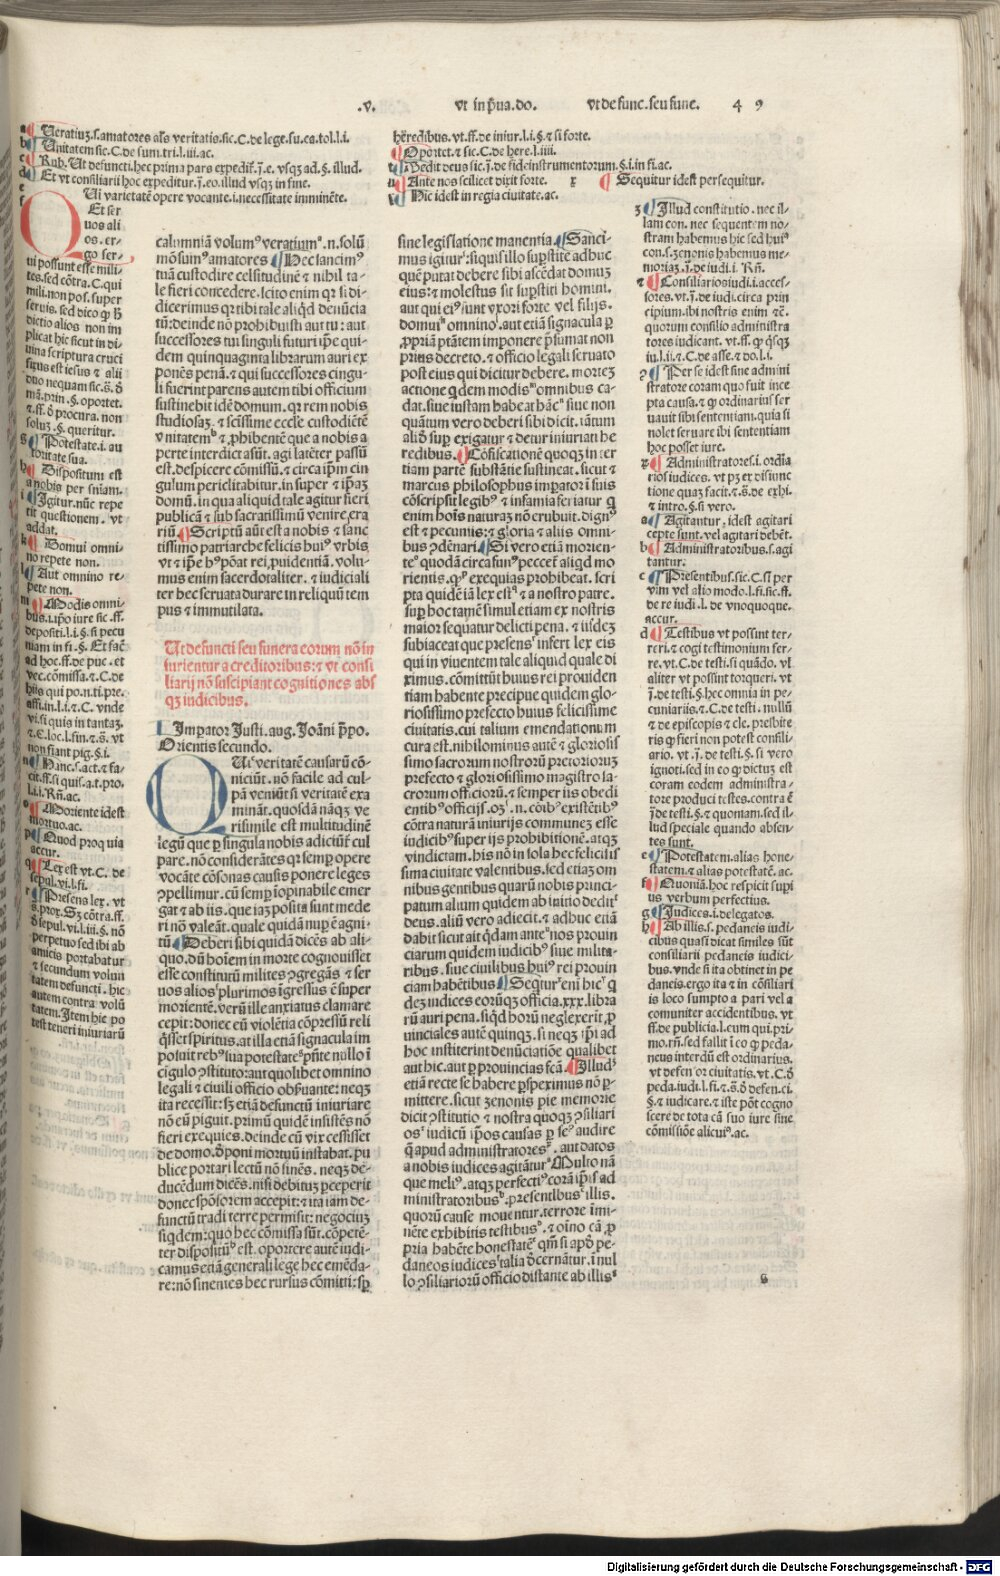 .v. vt in p̄ua.do. vt de func.seu fune. 4 9
a ¶ Veratiuȝ.s.amatores als veritatis.sic.C.de lege.fu.ca.tol.l.i.
b ¶ Vnitatem sic.C.de sum.tri.l.iii.ac.
c ¶ Rub. Ut defuncti.hec prima pars expedit̄.j̄.e.vsqȝ ad.§.illud.
d ¶ Et vt consiliarii hoc expeditur.j̄.eo.illud vsqȝ in fine.
e Qui varietatē opere vocante.i.necessitate iminēte.
f Et ser
uos ali
os.er-
go ser-
ui possunt esse mili
tes.sed cōtra.C.qui
mili.non pos.super
seruis.sed dico ꝙ ħ
dictio alios non im
plicat hic sicut in di-
uina scriptura cruci
fixus est iesus & alii
duo nequam sic.s̄.ō
mā.prin.§.oportet.
& ff.ō procura.non
soluȝ.§.queritur.
g ¶ Potestate.i.au
toritate sua.
h ¶ Dispositum est
a nobis per sniam.
i ¶ Igitur.nūc repe
tit questionem. vt
addat.
k ¶ Domui omni-
no repete non.
l ¶ Aut omnino re-
pete non.
m ¶ Modis omni-
bus.i.ipō iure sic.ff.
depositi.l.i.§.si pecu
niam in fi.§. Et facē
ad hoc.ff.de puc.et
vec.comissa.& C.de
hiis qui po.n.ti.pre.
affi.in.l.i.& C. vnde
vi.si quis in tantaȝ.
& C.loc.l.fin.& s̄. vt
non fiant pig.§.i.
n ¶ Hanc.s.act.& fa-
cit.ff.si quis.a t.pro.
l.i.i.Rn̄.ac.
o ¶ Moriente idest
mortuo.ac.
p ¶ Quod pro quia
accur.
q ¶ Lex est vt.C. de
sepul.vi.l.fi.
r ¶ Presens lex. vt
s.prox.Sȝ cōtra.ff.
ō sepul.vi.l.iii.§. nō
perpetuo sed ibi ab
amicis portabatur
& secundum volun
tatem defuncti.hic
autem contra volū
tatem.Item hic po
test teneri iniuriarū
calumniā volumꝰ veratiumᵃ.n.solū
mōsumꝰ amatores ¶ Hec sancimꝰ
tuā custodire celsitudinē & nihil ta-
le fieri concedere.scito enim qꝛ si di-
dicerimus qꝛ tibi tale aliqd denūcia
tū:deinde nō prohibuisti aut tu:aut
successores tui singuli futuri ip̄e qui-
dem quinquaginta librarum auri ex
ponēs penā.& qui successores cingu-
li fuerint parens autem tibi officium
sustinebit idē domum.qꝛ rem nobis
studiosaȝ.& sc̄issime eccl̄e custodiētē
vnitatemᵇ & ꝓhibentē que a nobis a
perte interdicta sūt.agi latēter passū
est.despicere cōmissū.& circa ip̄m cin
gulum periclitabitur.in super & ip̄aȝ
domū.in qua aliquid tale agitur fieri
publicā & sub sacratissimū venire,era
riū. ¶ Scriptū aūt est a nobis & sanc
tissimo patriarche felicis huiꝰ vrbis
vt & ip̄e hꝰ pōat rei,puidentiā.volu-
mus enim sacerdotaliter.& iudiciali
ter hec seruata durare in reliquū tem
pus & immutilata.
Ut defuncti seu funera eorum nō in
iurientur a creditoribus:& vt consi
liarij nō suscipiant cognitiones abs
qȝ iudicibus.
Impator Justi.aug.Joāni p̄po.
Orientis secundo.
QUi veritatē causarū cō-
niciūt.nō facile ad cul-
pā veniūt si veritatē exa
minār.quosdā nāqȝ ve
risimile est multitudinē
legū que ꝑ singula nobis adiciūt cul
pare.nō considerātes qꝛ semꝑ opere
vocāte cōsonas causis ponere leges
ꝯpellimur.cū semꝑ inopinabile emer
gat & ab iis.que iaȝ posita sunt mede
ri nō valeāt.quale quidā nuꝑ ē agni-
tū ¶ Deberi sibi quidā dicēs ab ali-
quo.dū hoīem in morte cognouisset
esse constitutū milites ꝯgregās & ser
uos alios plurimos ingressus ē super
morientē.verū ille anxiatus clamare
cepit:donec eū violētia cōpressū reli
q̄sset spiritus.at illa etiā signacula im
posuit rebꝰ sua potestateᵍ p̄nte nullo i
cigulo ꝯstituto:aut quolibet omnino
legali & ciuili officio obs̄uante:neqȝ
ita recessit:sȝ etiā defunctū iniuriare
nō eū piguit.primū quidē insistēs nō
fieri exequies.deinde cū vix cessisset
de domo.ōponi mortuū instabat.pu
blice portari lectū nō sinēs.neqȝ de-
ducēdum dicēs.nisi debituȝ peciperit
donec spōsorem accepit:& ita iam de-
functū tradi terre permisit:negociuȝ
siqdem:quo hec cōmissa sūt.cōpetē-
ter dispositūʰ est.oportere autē iudi-
camus etiā generali lege hec emēda-
re:nō sinentes hec rursus cōmitti:sꝑ
hēredibus.vt.ff.de iniur.l.i.§.& si forte.
s ¶ Oportet.& sic.C.de here.l.iiii.
t ¶ Dedit deus sic.j̄.de fideinstrumentorum.§.i.in fi.ac.
u ¶ Ante nos scilicet dixit forte. x ¶ Sequitur idest persequitur.
y ¶ Hic idest in regia ciuitate.ac.
sine legislatione manentia. ¶ Sanci-
mus igiturⁱ.si quis illo suꝑstite adhuc
quē putat debere sibi ascēdat domuȝ
eius:& molestus sit suꝑstiti homini.
aut qui eiꝰ sunt vxori forte vel filijs.
domuiᵏ omninoˡ.aut etiā signacula ꝑ
ꝓpriā ptātem imponere p̄sumat non
prius decreto.& officio legali seruato
post eius qui dicitur debere.morteȝ
actione q̄dem modisᵐ omnibus ca-
dat.siue iustam habeat hācⁿ siue non
quātum vero deberi sibi dicit.tātum
aliō sup exigatur & detur iniuriatis he
redibus. ¶ Cōfiscationē quoqȝ in ter
tiam partē substātie sustineat.sicut &
marcus philosophus imperator i suis
cōscripsit legibꝰ & infamia feriatur q̄
enim hoīs naturaȝ nō erubuit.dignꝰ
est & pecuniis:& gloria & aliis omni
bus ꝯdēnari. ¶ Si vero etiā morien-
teᵒ quodā circa funꝰ peccet aliqd mo
rientis.qꝛᵖ exequias prohibeat.scri
pta quidē iā lex est�q & a nostro patre.
suꝑ hoc tamē simul etiam ex nostris
maior sequatur delicti pena.& iisdeȝ
subiaceat que presensʳ infert lex eis
qui in viuentem tale aliquid quale di
ximus.cōmittūt huius rei prouiden
tiam habente precipue quidem glo-
riosissimo prefecto huius felicissime
ciuitatis.cui talium emendationum
cura est.nihilominus autē & gloriosis
simo sacrorum nostrorū pretoriorum
prefecto & gloriosissimo magistro sa-
crorum officiorū.& semper iis obedi
entibꝰ officijs.oȝˢ.n.cōibꝰ existētibꝰ
cōtra naturā iniurijs communeȝ esse
iudicibꝰ super ijs prohibitionē.atqȝ
vindictam.his nō in sola hec felicissi
sima ciuitate valentibus.sed etiaȝ om
nibus gentibus quarū nobis princi-
patum alium quidem ab initio deditᵗ
deus.aliū vero adiecit.& adhuc etiā
dabit sicut ait q̄dam anteᵘ nos prouin
ciarum quidem iudicibꝰ siue milita-
ribus.siue ciuilibus huiꝰ rei prouin
ciam habētibus ¶ Seq̄turˣ eni hicʸ q̄
deȝ iudices eorūqȝ officia.xxx.libra
rū auri pena.siqd horū neglexerit,ꝑ
uinciales autē quinqȝ.si neqȝ ip̄i ad
hoc institerint denūciatiōe qualibet
aut hic.aut ꝑ prouincias fcā. ¶ Illudᶻ
etiā recte se habere ꝑspeximus nō ꝑ-
mittere.sicut ȝenonis pie memorie
dicit ꝯstitutio & nostra quoqȝ ꝯsiliari
os iudicū ip̄os causas ꝑ se audire
q̄ apud administratores.aut datos
a nobis iudices agitātur Multo nā
que meliꝰ.atqȝ perfectiꝰ corā ip̄is ad
ministratoribusᵇ.presentibusᶜ illis.
quorū cause mouentur.terrore imi-
nēte exhibitis testibusᵈ.& oīno cā,ꝓ
pria habēte honestatēᵉ qm̄ᶠ si apō pe-
daneos iudicesᵍ talia ōcernātur.i nul
lo ꝯsiliariorū officio distante ab illisʰ
z ¶ Illud constitutio. nec il-
lam con.nec sequentem no-
stram habemus hic sed huiꝰ
con.s.ȝenonis habemus me-
moriaȝ.j̄.de iudi.i.Rn̄.
& ¶ Consiliarios iudi.i.acces-
sores.vt.j̄.de iudi.circa prin
cipium.ibi nostris enim &c̄.
quorum consilio administra
tores iudicant.vt.ff.ꝙ q̄sqȝ
iu.l.ii.& C.de asse.& do.l.i.
ꝯ ¶ Per se idest sine admini
stratore coram quo fuit ince
pta causa.& ꝙ ordinarius ser
uauit sibi sententiam.quia si
nolet seruare ibi sententiam
hoc posset iure.
ꝶ ¶ Administratores.i.ordia
rios iudices. vt pȝ ex disiunc
tione quaȝ facit.& s̄.de exhi.
& intro.§.si vero.
a ¶ Agitantur,idest agitari
cepte sunt.vel agitari debēt.
b ¶ Administratoribus.s.agi
tantur.
c ¶ Presentibus.sic.C.si per
vim vel alio modo.l.fi.sic.ff.
de re iudi.l.de vnoquoque.
accur.
d ¶ Testibus vt possint ter-
reri.& cogi testimonium ser-
re.vt.C.de testi.si quādo. vl
aliter vt possint torqueri.vt
j̄.de testi.§.hec omnia in pe-
cuniariis.& C.de testi.nullū
& de episcopis & cle.presbite
ris ꝙ fieri non potest consili-
ario. vt.j̄.de testi.§.si vero
ignoti.sed in eo ꝙ dictuȝ est
coram eodem administra-
tore produci testes.contra ē
j̄.de testi.§.& quoniam.sed il-
lud speciale quando absen-
tes sunt.
e ¶ Potestatem.alias hone-
statem.& alias potestatē.ac.
f ¶ Quoniā.hoc respicit supi
us verbum perfectius.
g ¶ Judices.i.delegatos.
h ¶ Ab illis.s.pedaneis iudi-
cibus quasi dicat similes sūt
consiliarii pedaneis iudici-
bus.vnde si ita obtinet in pe
daneis.ergo ita & in cōsiliari
is loco sumpto a pari vel a
comuniter accidentibus. vt
ff.de publicia.l.eum qui.pri-
mo.rn̄.sed fallit i eo ꝙ peda-
neus interdū est ordinarius.
vt defensor ciuitatis. vt.C.ō
peda.iudi.l.fi.& s̄.ō defen.ci
§.& iudicare.& iste pōt cogno
scere de tota cā suo iure sine
cōmissiōe alicuiꝰ.ac.
g
Digitalisierung gefördert durch die Deutsche Forschungsgemeinschaft - DFG